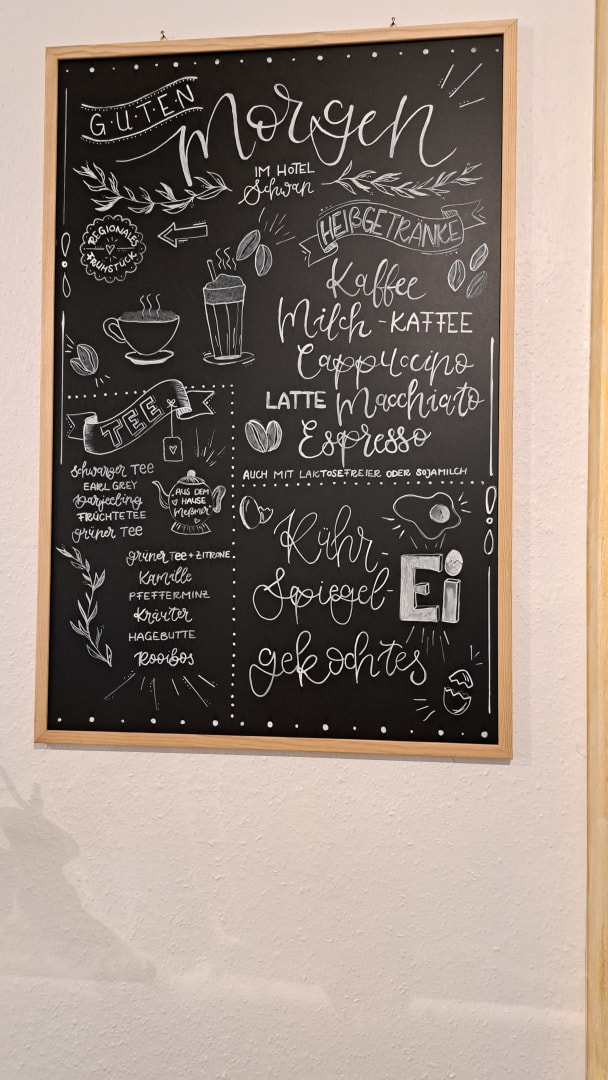 GUTEN
Morgen
IM HOTEL
Schwan
REGIONALES
FRÜHSTÜCK
HEIßGETRÄNKE
Kaffee
Milch-KAFFEE
Cappuccino
LATTE Macchiato
Espresso
AUCH MIT LAKTOSEFREIER ODER SOJAMILCH
TEE
schwarzer TEE
EARL GREY
Darjeeling
FRÜCHTETEE
grüner TEE
AUS DEM
HAUSE
Meßmer
grüner Tee + ZITRONE
Kamille
PFEFFERMINZ
Kräuter
HAGEBUTTE
Rooibos
Rühr-
Spiegel-
Ei
gekochtes